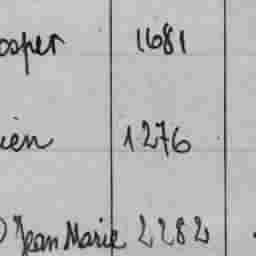 osper 1681
ien 1276
Jean Marie 2282